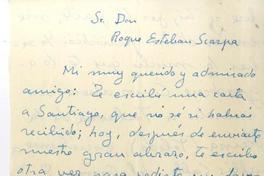 Sr. Don
Roque Esteban Scarpa
Mi muy querido y admirado
amigo: Te escribí una carta
a Santiago, que no sé si habrás
recibido; hoy, después de enviarte
nuestro gran abrazo, te escribo
otra vez para pedirte un favor